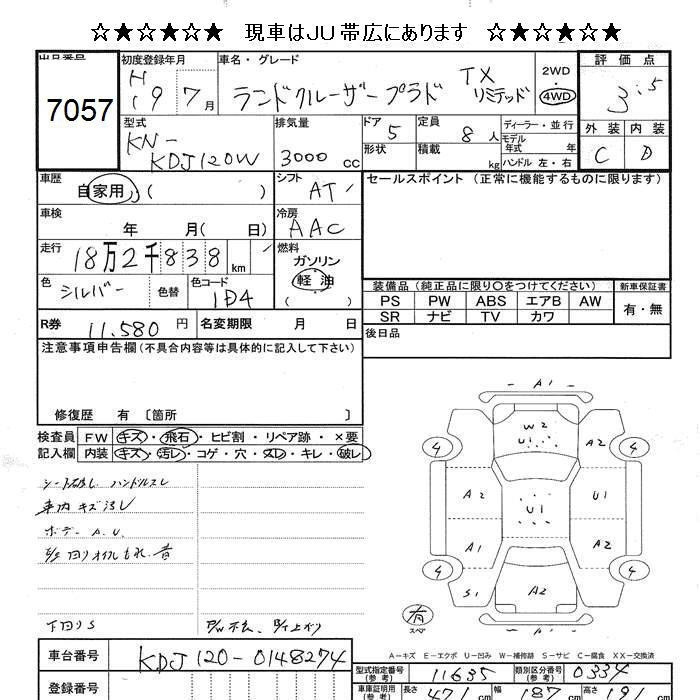 ☆★☆★☆★ 現車はJU帯広にあります ☆★☆★☆★
出品番号 初度登録年月 車名・グレード 2WD 評価点
7057 H19 7月 ランドクルーザープラド TXリミテッド 4WD 3.5
型式 排気量 ドア 定員 ディーラー・並行 外装 内装
KN-KDJ120W 3000cc 5 8人 モデル年式 年 C D
形状 積載 kg ハンドル 左・右
車歴 自家用 ( ) シフト AT セールスポイント (正常に機能するものに限ります)
車検 年 月( 日) 冷房 AAC
走行 18万2千838km 燃料 ガソリン 軽油 ( )
色 シルバー 色替 色コード 1D4
装備品(純正品に限り○をつけてください) 新車保証書
PS PW ABS エアB AW 有・無
SR ナビ TV カワ
R券 11,580円 名変期限 月 日 後日品
注意事項申告欄(不具合内容等は具体的に記入して下さい)
修復歴 有 〔箇所 〕
検査員記入欄 FW キズ・飛石・ヒビ割・リペア跡・×要
内装 キズ・汚レ・コゲ・穴・スレ・キレ・破レ
シート破レ ハンドルスレ
車内キズ汚レ
ボデー A.U.
下回りS
A1
W2 U1
A2 A2 U1 U1
A1 A2
S1 A2
A
4 4 4 4
有 スペア
A-キズ E-エクボ U-凹み W-補修跡 S-サビ C-腐食 XX-交換済
車台番号 KDJ120-0148274 型式指定番号(参考) 11635 類別区分番号(参考) 0334
登録番号 車庫証明用(参考) 長さ 471cm 幅 187cm 高さ 191cm